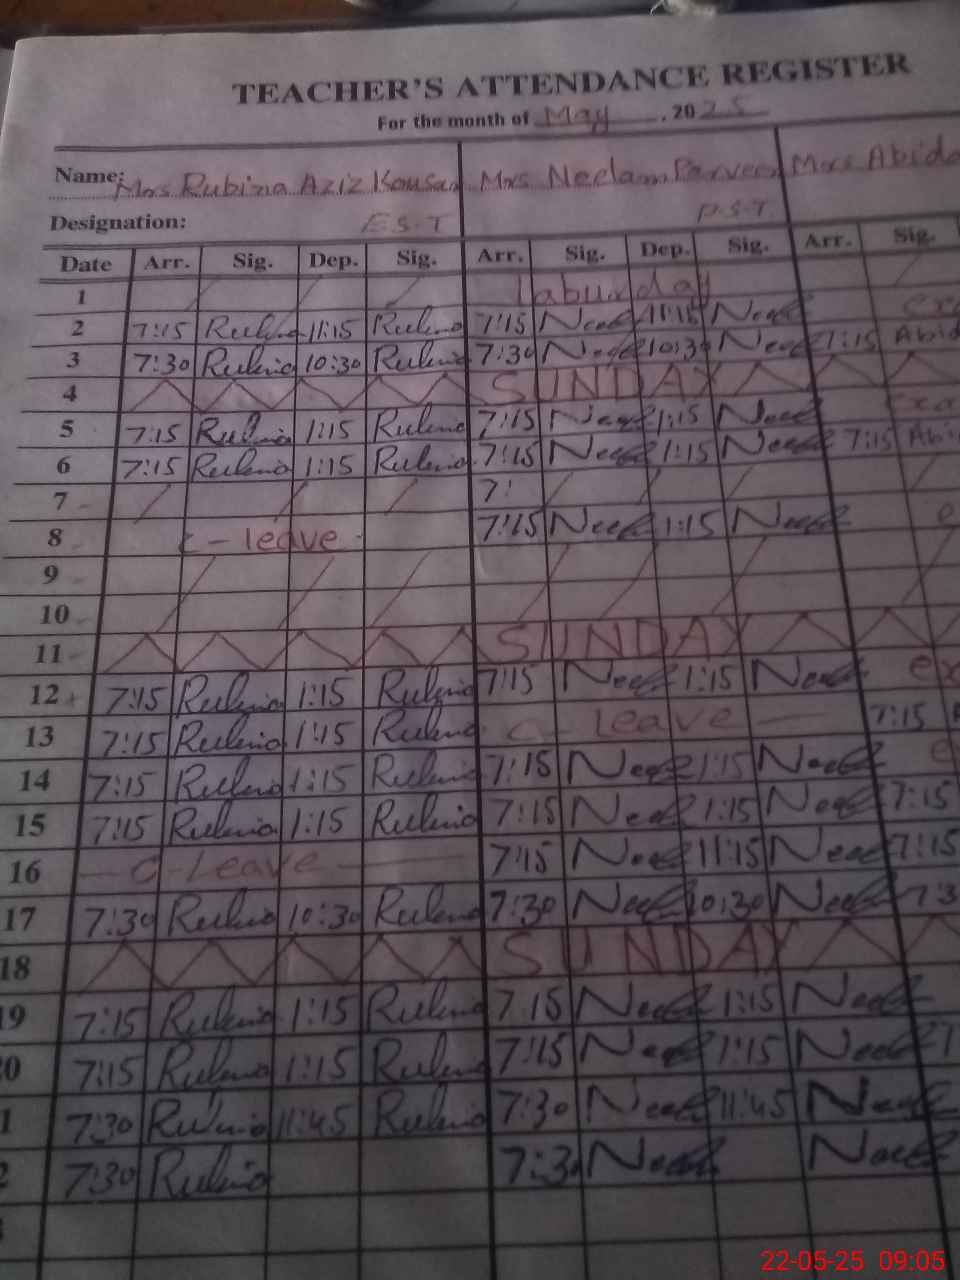 TEACHER'S ATTENDANCE REGISTER
For the month of May, 2025
Name: Mrs Rubina Aziz Kousar Mrs Neelam Parveen Mrs Abida
Designation: E.S.T P.S.T
Date Arr. Sig. Dep. Sig. Arr. Sig. Dep. Sig. Arr. Sig.
1 Labur day
2 7:15 Rubina 11:15 Rubina 7:15 Neel 11:15 Neel
3 7:30 Rubina 10:30 Rubina 7:30 Neel 10:30 Neel 7:15 Abid
4 SUNDAY
5 7:15 Rubina 1:15 Rubina 7:15 Neel 1:15 Neel
6 7:15 Rubina 1:15 Rubina 7:15 Neel 1:15 Neel 7:15 Abi
7 7:
8 C-leave 7:15 Neel 1:15 Neel
9
10
11 SUNDAY
12 7:15 Rubina 1:15 Rubina 7:15 Neel 1:15 Neel ex
13 7:15 Rubina 1:15 Rubina C leave 7:15
14 7:15 Rubina 1:15 Rubina 7:15 Neel 1:15 Neel
15 7:15 Rubina 1:15 Rubina 7:15 Neel 1:15 Neel 7:15
16 C-Leave 7:15 Neel 11:15 Neel 7:15
17 7:30 Rubina 10:30 Rubina 7:30 Neel 10:30 Neel 7:3
18 SUNDAY
19 7:15 Rubina 1:15 Rubina 7:15 Neel 1:15 Neel
20 7:15 Rubina 1:15 Rubina 7:15 Neel 1:15 Neel
1 7:30 Rubina 11:45 Rubina 7:30 Neel 11:45 Neel
2 7:30 Rubina 7:30 Neel Neel
22-05-25 09:05